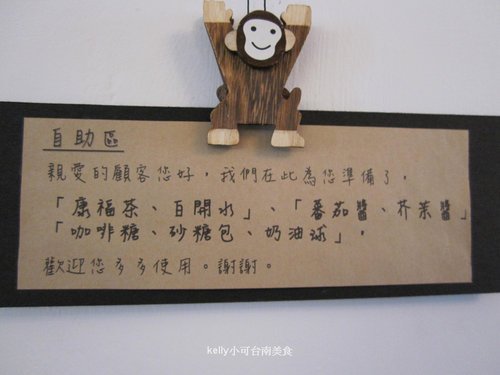 自助區
親愛的顧客您好，我們在此為您準備了，
「康福茶、白開水」、「番茄醬、芥茉醬」
「咖啡糖、砂糖包、奶油球」，
歡迎您多多使用。謝謝。
kelly小可台南美食